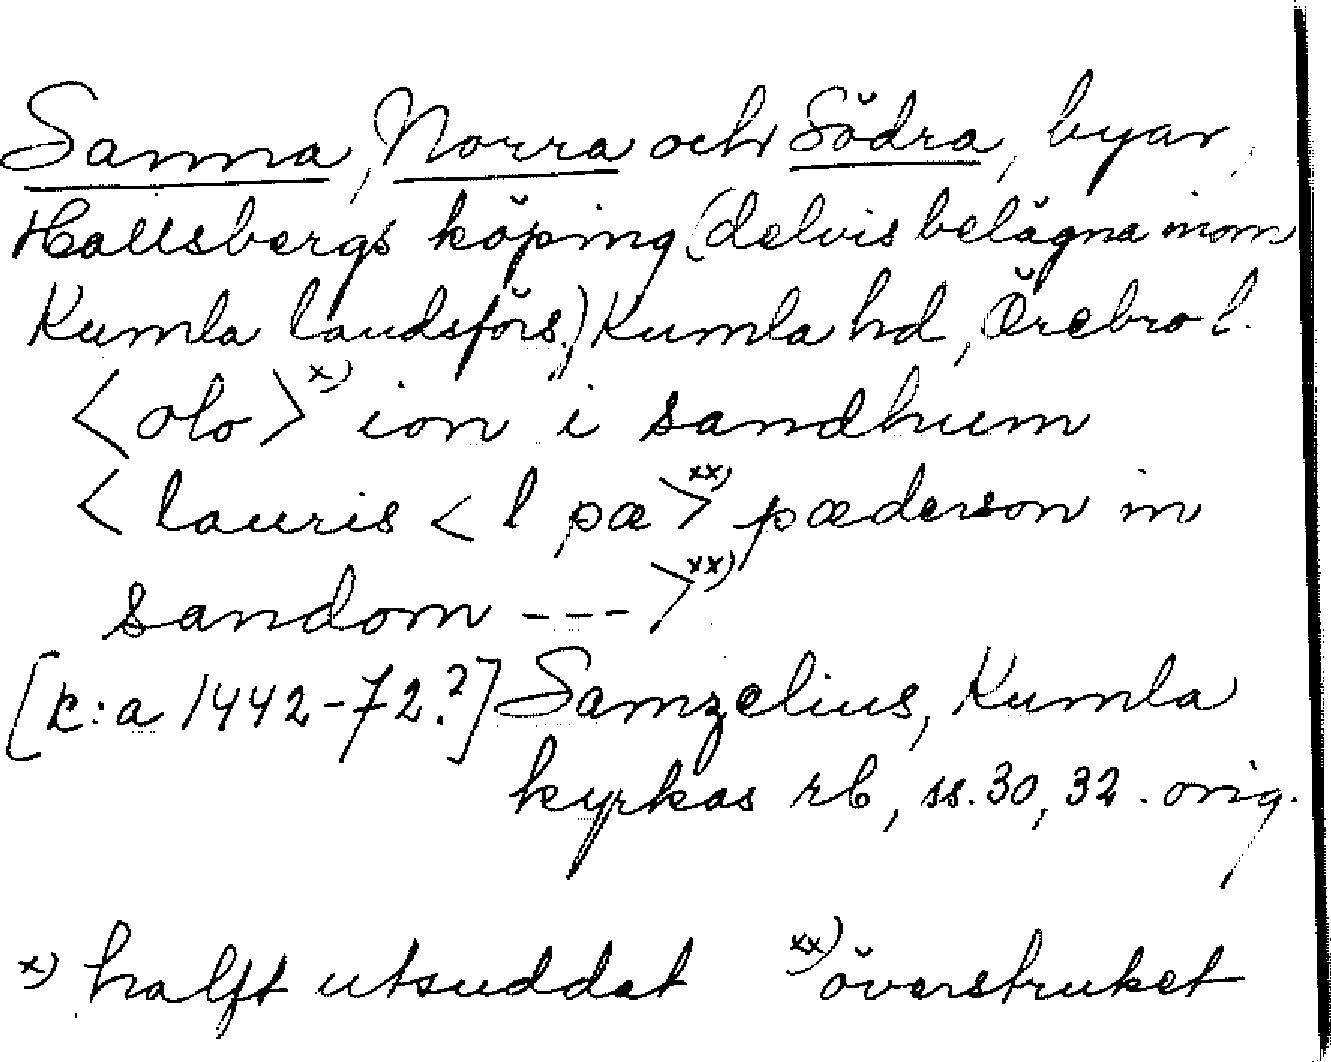 Sanna, Norra och Södra, byar,
Hallsbergs köping (delvis belägna inom
Kumla landsförs.) Kumla hd, Örebro l.
<olo>x) ion i sandhum
<lauris <l pæ>xx) pæderson in
sandom --->xx)
[k:a 1442-72?] Samzelius, Kumla
kyrkas rb, ss. 30, 32. orig.
x) halft utsuddat xx) överstruket